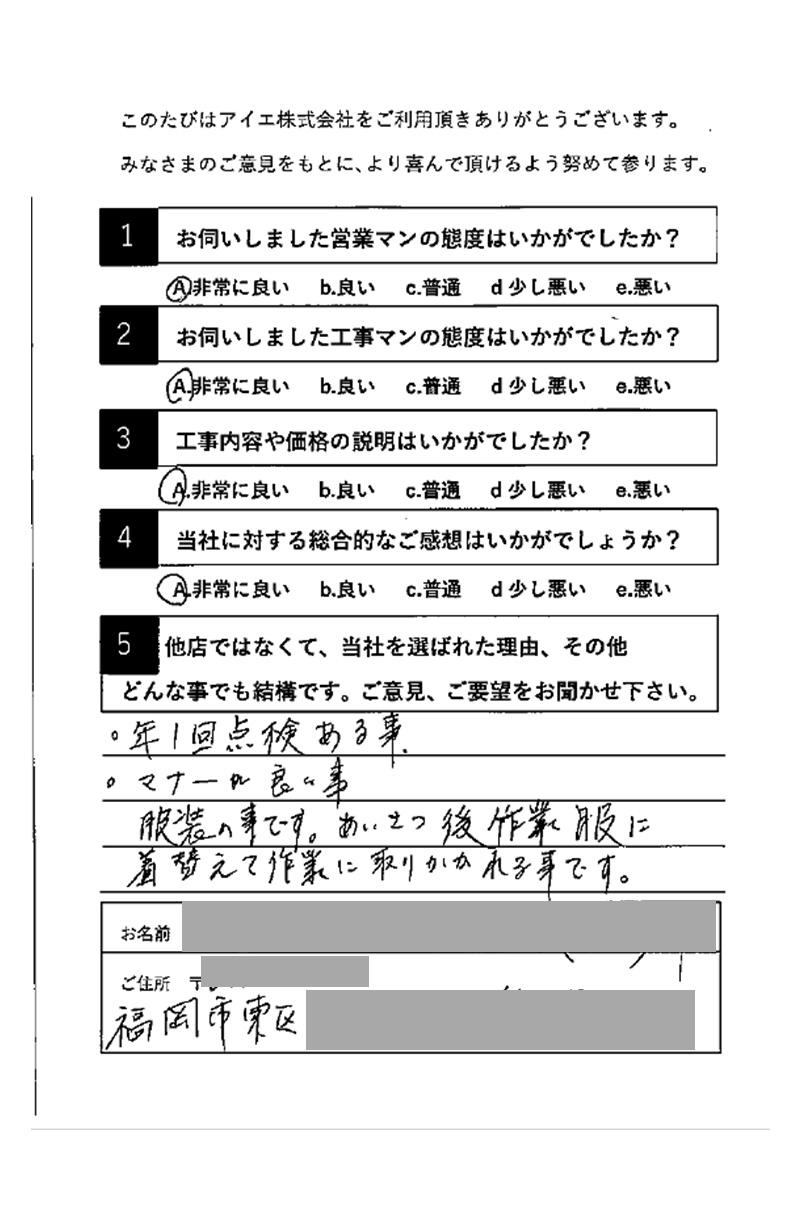 このたびはアイエ株式会社をご利用頂きありがとうございます。
みなさまのご意見をもとに、より喜んで頂けるよう努めて参ります。
1 お伺いしました営業マンの態度はいかがでしたか？
A.非常に良い b.良い c.普通 d 少し悪い e.悪い
2 お伺いしました工事マンの態度はいかがでしたか？
A.非常に良い b.良い c.普通 d 少し悪い e.悪い
3 工事内容や価格の説明はいかがでしたか？
A.非常に良い b.良い c.普通 d 少し悪い e.悪い
4 当社に対する総合的なご感想はいかがでしょうか？
A.非常に良い b.良い c.普通 d 少し悪い e.悪い
5 他店ではなくて、当社を選ばれた理由、その他
どんな事でも結構です。ご意見、ご要望をお聞かせ下さい。
○ 年1回点検ある事.
○ マナーが良い事
服装の事です。あいさつ後作業服に
着替えて作業に取りかかれる事です。
お名前
ご住所 〒
福岡市東区